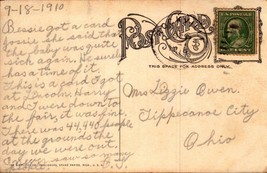 9-18-1910
Bessie got a card
She said that
the baby was quite
sick again. He surely
has a time of it.
This is a cold & got
Harry
and I were down to
the fair, it was fine.
There was 44,440 people
at the grounds the
day we were out.
Post Card
THIS SPACE FOR ADDRESS ONLY.
Mrs Lizzie Owen.
Tippecanoe City
Ohio